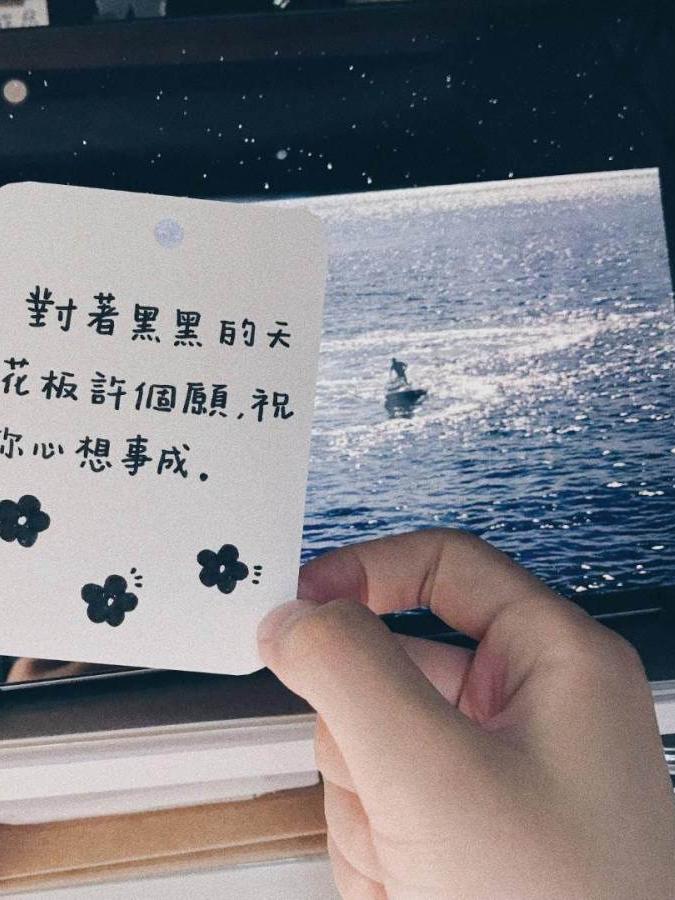 對著黑黑的天
花板許個願,祝
你心想事成。